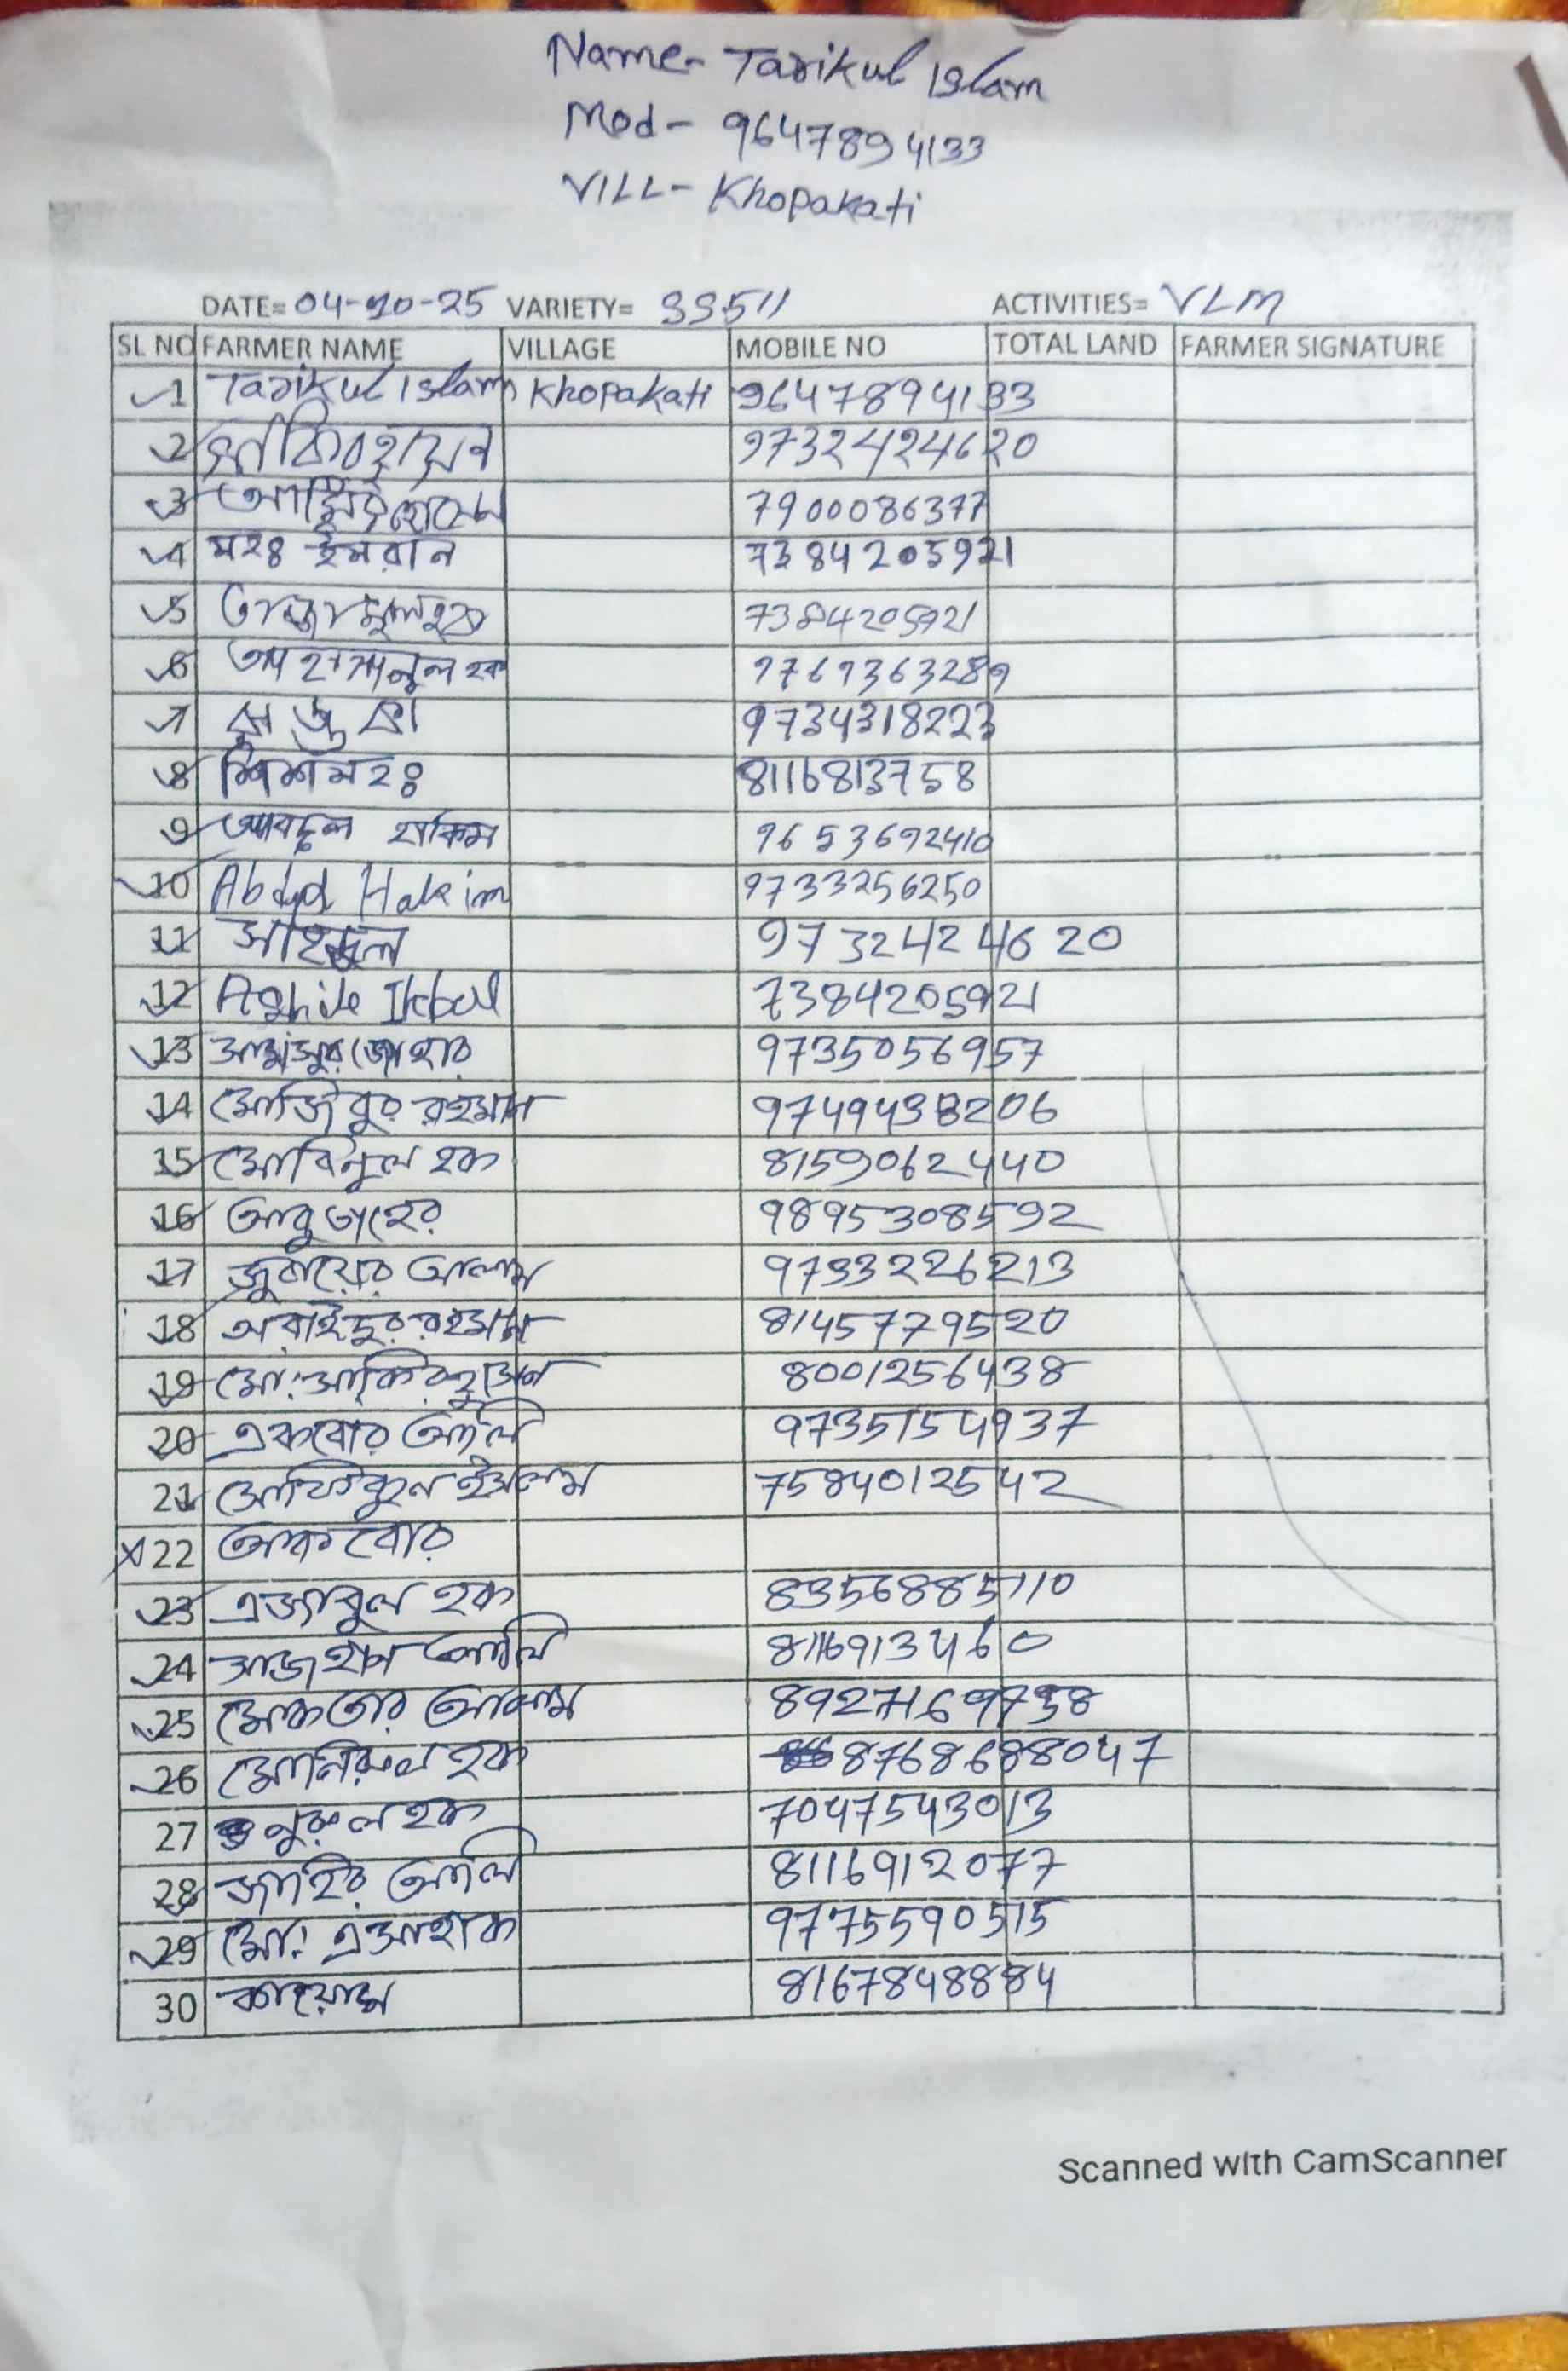 Name- Tarikul Islam
Mod- 9647894133
VILL- Khopakati
DATE= 04-10-25 VARIETY= SS511 ACTIVITIES= VLM
SL NO FARMER NAME VILLAGE MOBILE NO TOTAL LAND FARMER SIGNATURE
1 Tarikul Islam Khopakati 9647894133
2 9732424620
3 7900086377
4 মহঃ ইমরান 7384205921
5 7384205921
6 হক 9769363289
7 9734318223
8 মহঃ 8116813758
9 আবদুল হাকিম 9653692410
10 Abdul Hakim 9733256250
11 9732424620
12 Ikbal 7384205921
13 9735056957
14 মোজিবুর রহমান 9749438206
15 মোবিনুল হক 8159062440
16 আবু তাহের 9895308592
17 জুবায়ের আলাম 9733226213
18 অবাইদুর রহমান 8145779520
19 মো: সাকির হুসেন 8001256438
20 একবোর আলি 9735154937
21 ইসলাম 7584012542
22 আকবোর
23 এজাবুল হক 8356885110
24 আলি 8116913460
25 মোকতার আলাম 8927169758
26 মোনিরুল হক 8768688047
27 নুরুল হক 7047543013
28 জাহির আলি 8116912077
29 মো: এসাহাক 9775590515
30 কায়োম 8167848884
Scanned with CamScanner